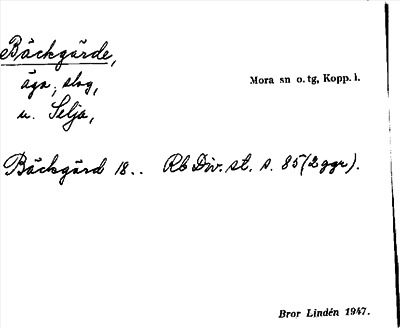 Bäckgärde,
äga, slog,
Mora sn o. tg, Kopp. l.
u. Selja,
Bäckgärd 18.. Rb Div. st. s. 85 (2 ggr).
Bror Lindén 1947.